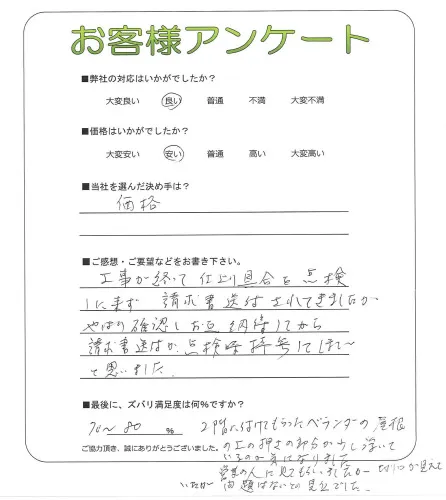 お客様アンケート
■弊社の対応はいかがでしたか？
大変良い 良い 普通 不満 大変不満
■価格はいかがでしたか？
大変安い 安い 普通 高い 大変高い
■当社を選んだ決め手は？
価格
■ご感想・ご要望などをお書き下さい。
工事が終って 仕上り具合を点検
に来ず 請求書送付されてきましたが
やはり確認しお互納得してから
請求書送付か 点検時持参してほしい
と思いました
■最後に、ズバリ満足度は何％ですか？
70〜80 ％
2階に付けてもらったベランダーの屋根
の上の押さの部分が少し浮いて
いるのが気になりました
ご協力頂き、誠にありがとうございました。
営業の人に見てもらいましたが
問題はないとの見立でした。